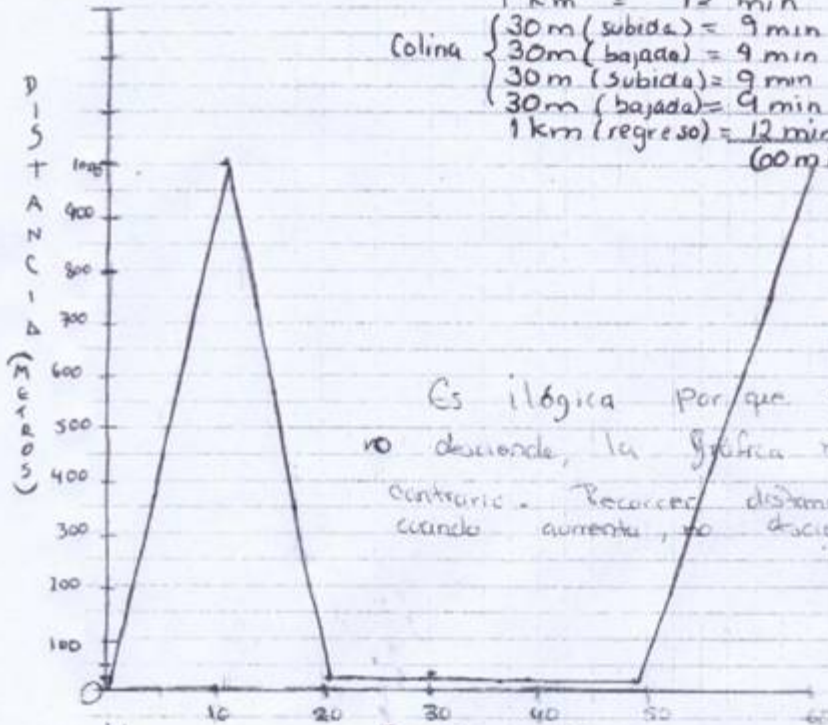 1 km = 12 min
Colina
30 m (subida) = 9 min
30 m (bajada) = 9 min
30 m (subida) = 9 min
30 m (bajada) = 9 min
1 km (regreso) = 12 min
60 m
DISTANCIA (METROS)
1000
900
800
700
600
500
400
300
200
100
0
10
20
30
40
50
60
Es ilógica por que
no desciende, la gráfica
contrario. Recorrer
cuando aumenta, no